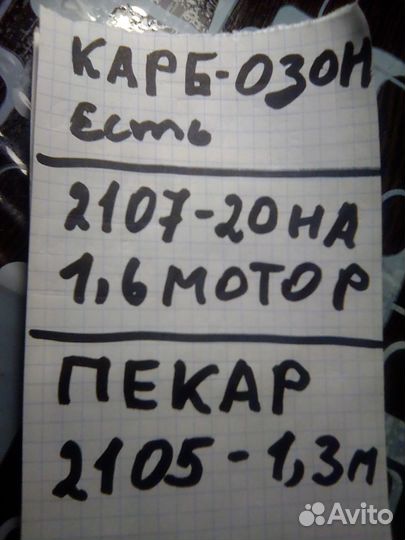 КАРБ-ОЗОН
Есть
2107-20НА
1,6 МОТОР
ПЕКАР
2105-1,3м
Avito